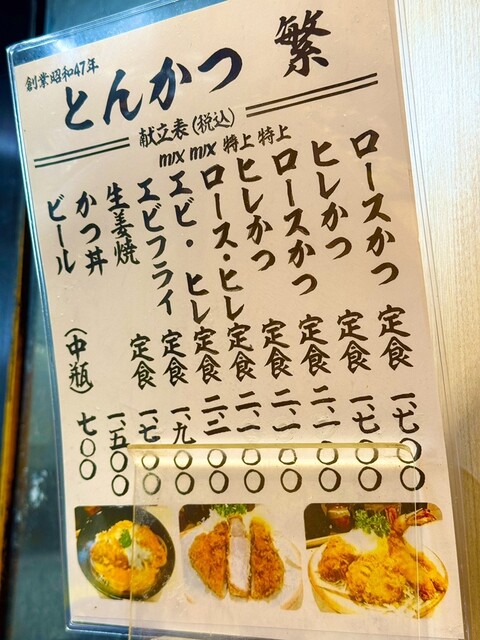 創業昭和47年
とんかつ 繁
献立表(税込)
mix mix 特上 特上
ロースかつ 定食 一、七〇〇
ヒレかつ 定食 一、七〇〇
ロースかつ 定食 二、一〇〇
ヒレかつ 定食 二、一〇〇
ロース・ヒレ 定食 二、一〇〇
エビ・ヒレ 定食 二、二〇〇
エビフライ 定食 一、九〇〇
生姜焼 定食 一、七〇〇
かつ丼 一、五〇〇
ビール (中瓶) 七〇〇